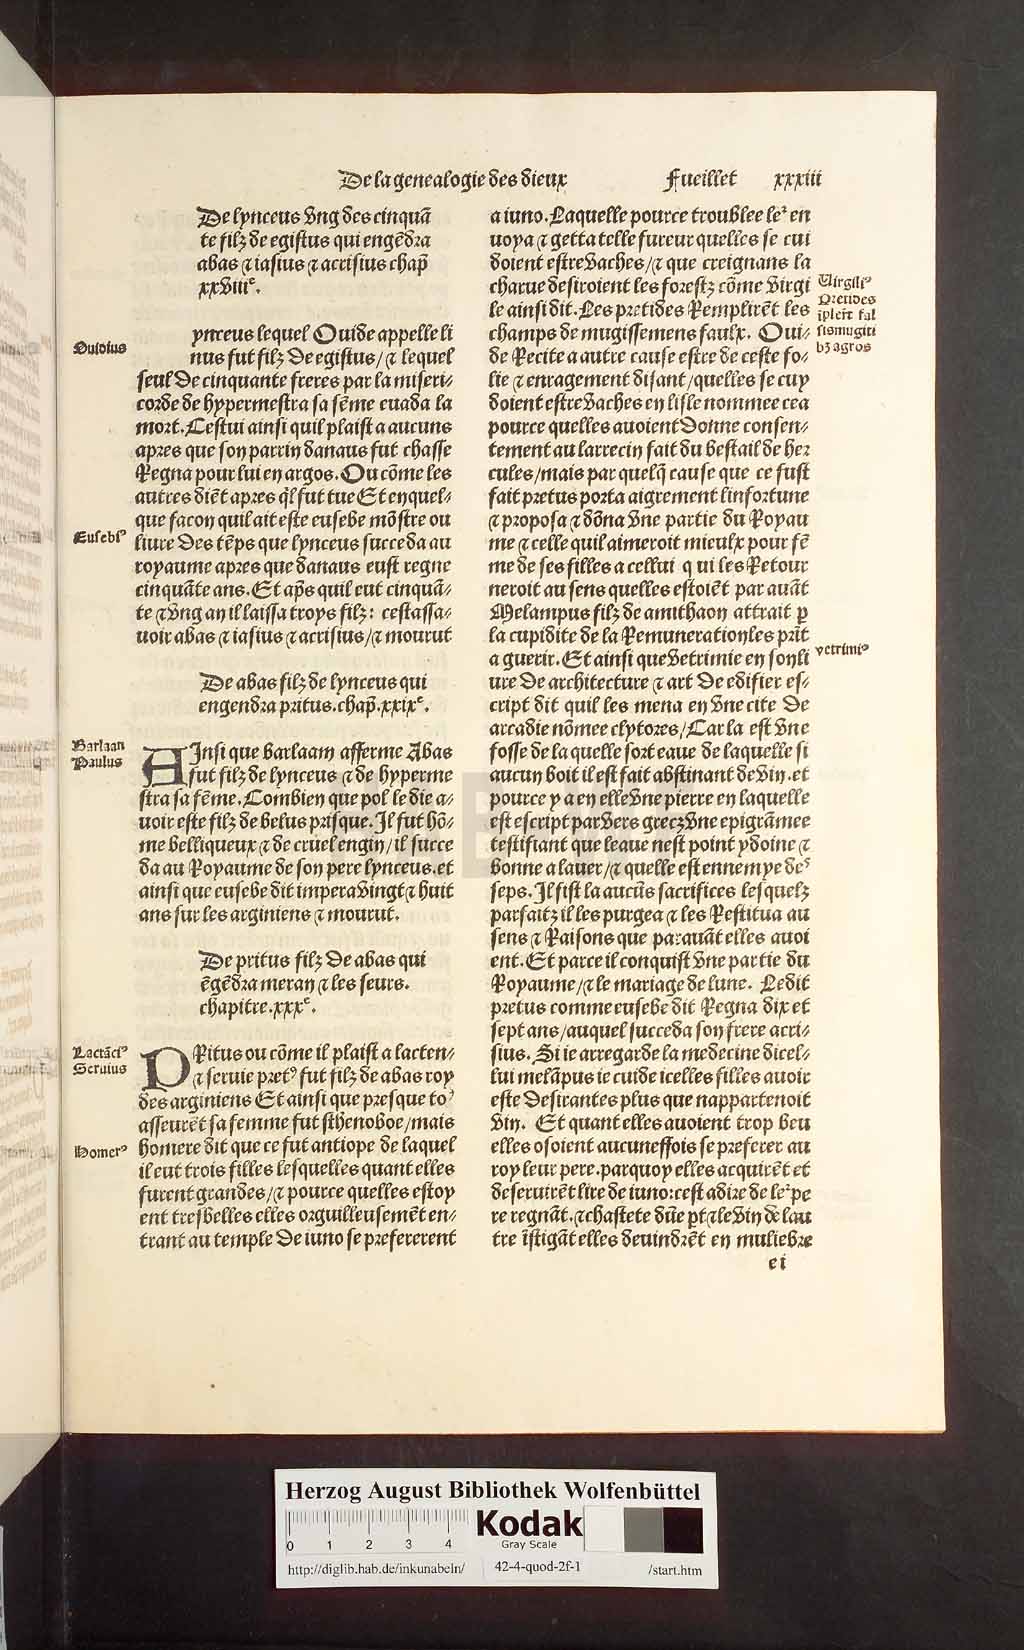 De la genealogie des dieux Fueillet xxxiii
De lynceus Vng des cinquā
te filz de egistus qui engēdra
abas ⁊ iasius ⁊ acrisius chap̄
xxViiiᵉ.
Ouidius
ynceus lequel Ouide appelle li
nus fut filz De egistus/⁊ lequel
seul De cinquante freres par la miseri⸗
corde de hypermestra sa fēme euada la
mort. Cestui ainsi quil plaist a aucuns
apres que son parrin danaus fut chasse
Regna pour lui en argos. Ou cōme les
autres diēt apres q̄l fut tue Et en quel⸗
que facon quil ait este eusebe mōstre ou
Eusebiꝰ
liure Des tēps que lynceus succeda au
royaume apres que danaus eust regne
cinquāte ans. Et ap̄s quil eut cinquā⸗
te ⁊ Vng an il laissa troys filz: cestassa⸗
uoir abas ⁊ iasius ⁊ acrisius/⁊ mourut
De abas filz de lynceus qui
engendra pritus. chap̄. xxixᵉ.
Barlaan
Paulus
AInsi que barlaam afferme Abas
fut filz de lynceus ⁊ de hyperme
stra sa fēme. Combien que pol le die a⸗
uoir este filz de belus prisque. Il fut hō⸗
me belliqueux ⁊ de cruel engin/il succe
da au Royaume de son pere lynceus. et
ainsi que eusebe dit impera Vingt ⁊ huit
ans sur les arginiens ⁊ mourut.
De pritus filz De abas qui
ēgēdra meran ⁊ les seurs.
chapitre. xxxᵉ.
Lactāciꝰ
Seruius
PRitus ou cōme il plaist a lacten⸗
⁊ seruie pretꝰ fut filz de abas roy
des arginiens Et ainsi que presque toꝰ
asseurēt sa femme fut sthenoboe/mais
Homerꝰ
homere dit que ce fut antiope de laquel
il eut trois filles lesquelles quant elles
furent grandes/⁊ pource quelles estoy
ent tresbelles elles orguilleusemēt en⸗
trant au temple De iuno se prefererent
a iuno. Laquelle pource troublee leꝛ en
uoya ⁊ getta telle fureur quelles se cui
doient estre Vaches/⁊ que creignans la
charue desiroient les forestz cōme Virgi
Virgiliꝰ
Pretides
īplerēt fal
sis mugiti
bꝫ agros
le ainsi dit. Les pretides Remplirēt les
champs de mugissemens faulx. Oui⸗
de Recite a autre cause estre de ceste fo⸗
lie ⁊ enragement disant/quelles se cuy
doient estre Vaches en lisle nommee cea
pource quelles auoient Donne consen⸗
tement au larrecin fait du bestail de her
cules/mais par quelq̄ cause que ce fust
fait pretus porta aigrement linfortune
⁊ proposa ⁊ dōna Vne partie du Royau
me ⁊ celle quil aimeroit mieulx pour fē
me de ses filles a cellui q ui les Retour
neroit au sens quelles estoiēt par auāt
Melampus filz de amithaon attrait ꝑ
la cupidite de la Remuneration les prīt
a guerir. Et ainsi que Vetrimie en son li
vetrimiꝰ
ure De architecture ⁊ art De edifier es⸗
cript dit quil les mena en Vne cite De
arcadie nōmee clytores/Car la est Vne
fosse de la quelle sort eaue de laquelle si
aucun boit il est fait abstinant de Vin. et
pource y a en elle Vne pierre en laquelle
est escript par Vers grecz Vne epigrāmee
testifiant que leaue nest point ydoine ⁊
bonne a lauer/⁊ quelle est ennemye deˢ
seps. Il fist la aucūs sacrifices lesquelz
parfaitz il les purgea ⁊ les Restitua au
sens ⁊ Raisons que parauāt elles auoi
ent. Et parce il conquist Vne partie du
Royaume/⁊ le mariage de lune. Ledit
pretus comme eusebe dit Regna dix et
sept ans/auquel succeda son frere acri⸗
sius. Si ie arregarde la medecine dicel⸗
lui melāpus ie cuide icelles filles auoir
este Desirantes plus que nappartenoit
Vin. Et quant elles auoient trop beu
elles osoient aucuneffois se preferer au
roy leur pere. parquoy elles acquirēt et
deseruirēt lire de iuno: cest a dire de leꝛ pe
re regnāt. ⁊ chastete dūe ꝑt ⁊ le Vin de lau
tre īstigāt elles deuindrēt en muliebre
e i
HAB WF
Herzog August Bibliothek Wolfenbüttel
0 1 2 3 4
Kodak
Gray Scale
http://diglib.hab.de/inkunabeln/ 42-4-quod-2f-1 /start.htm